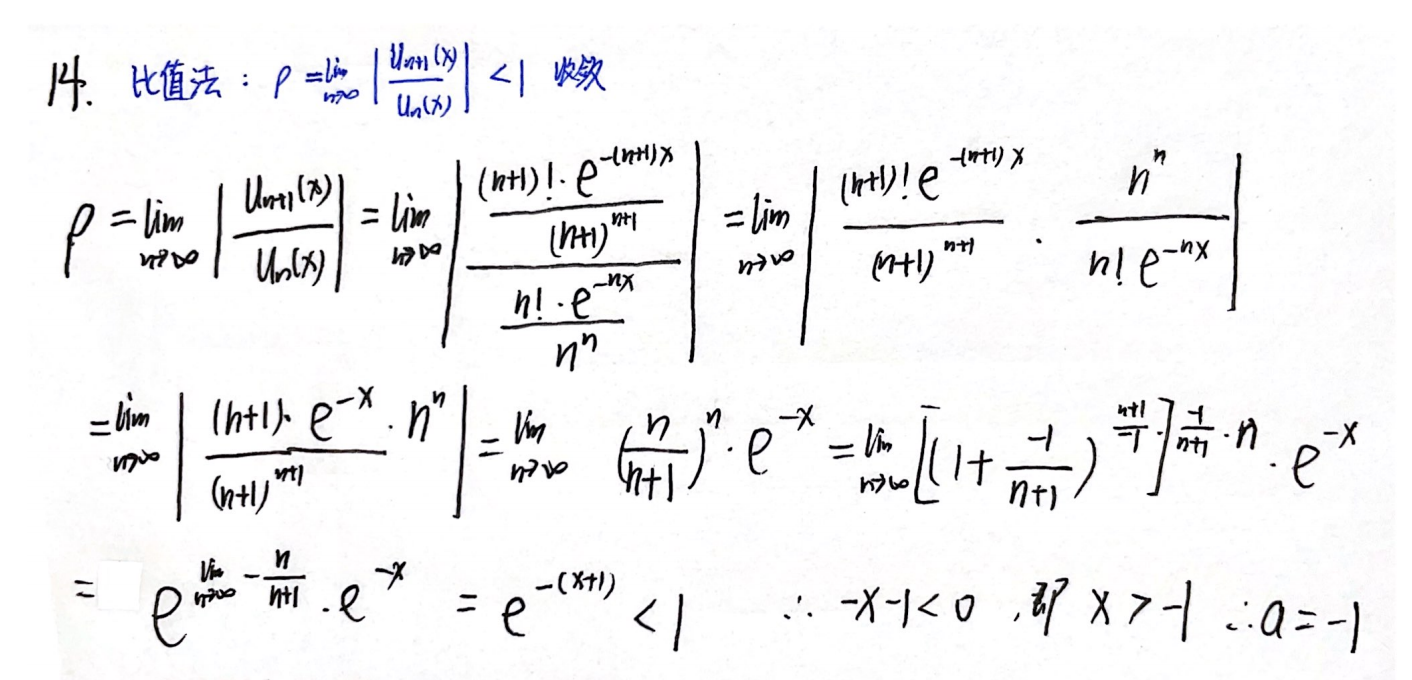 14. 比值法: ρ = lim_{n→∞} |U_{n+1}(x) / U_n(x)| < 1 收敛
ρ = lim_{n→∞} |U_{n+1}(x) / U_n(x)| = lim_{n→∞} |((n+1)!·e^{-(n+1)x} / (n+1)^{n+1}) / (n!·e^{-nx} / n^n)| = lim_{n→∞} |(n+1)! e^{-(n+1)x} / (n+1)^{n+1} · n^n / (n! e^{-nx})|
= lim_{n→∞} |(n+1)·e^{-x}·n^n / (n+1)^{n+1}| = lim_{n→∞} (n/(n+1))^n · e^{-x} = lim_{n→∞} [(1 + -1/(n+1))^{(n+1)/-1}]^{-1/(n+1)·n} · e^{-x}
= e^{lim_{n→∞} -n/(n+1)} · e^{-x} = e^{-(x+1)} < 1 ∴ -x-1<0, 即 x>-1 ∴ a=-1